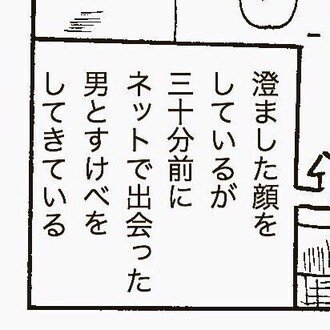 澄ました顔を
しているが
三十分前に
ネットで出会った
男とすけべを
してきている